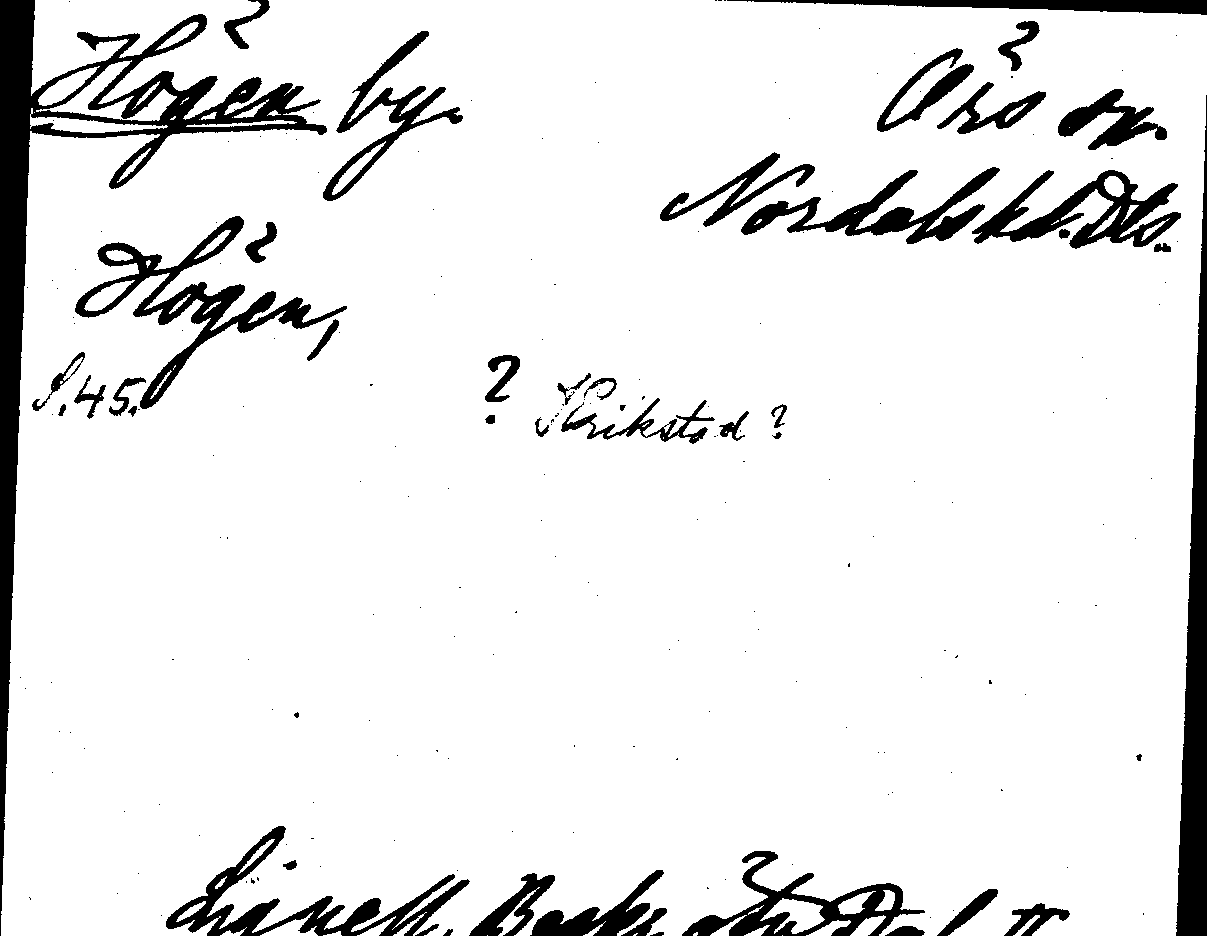 Högen by. Örs sn.
Nordalshd. Dls.
Högen,
S.45. ? Krikstad ?
Lignell, Beskr. öfv. Dal II